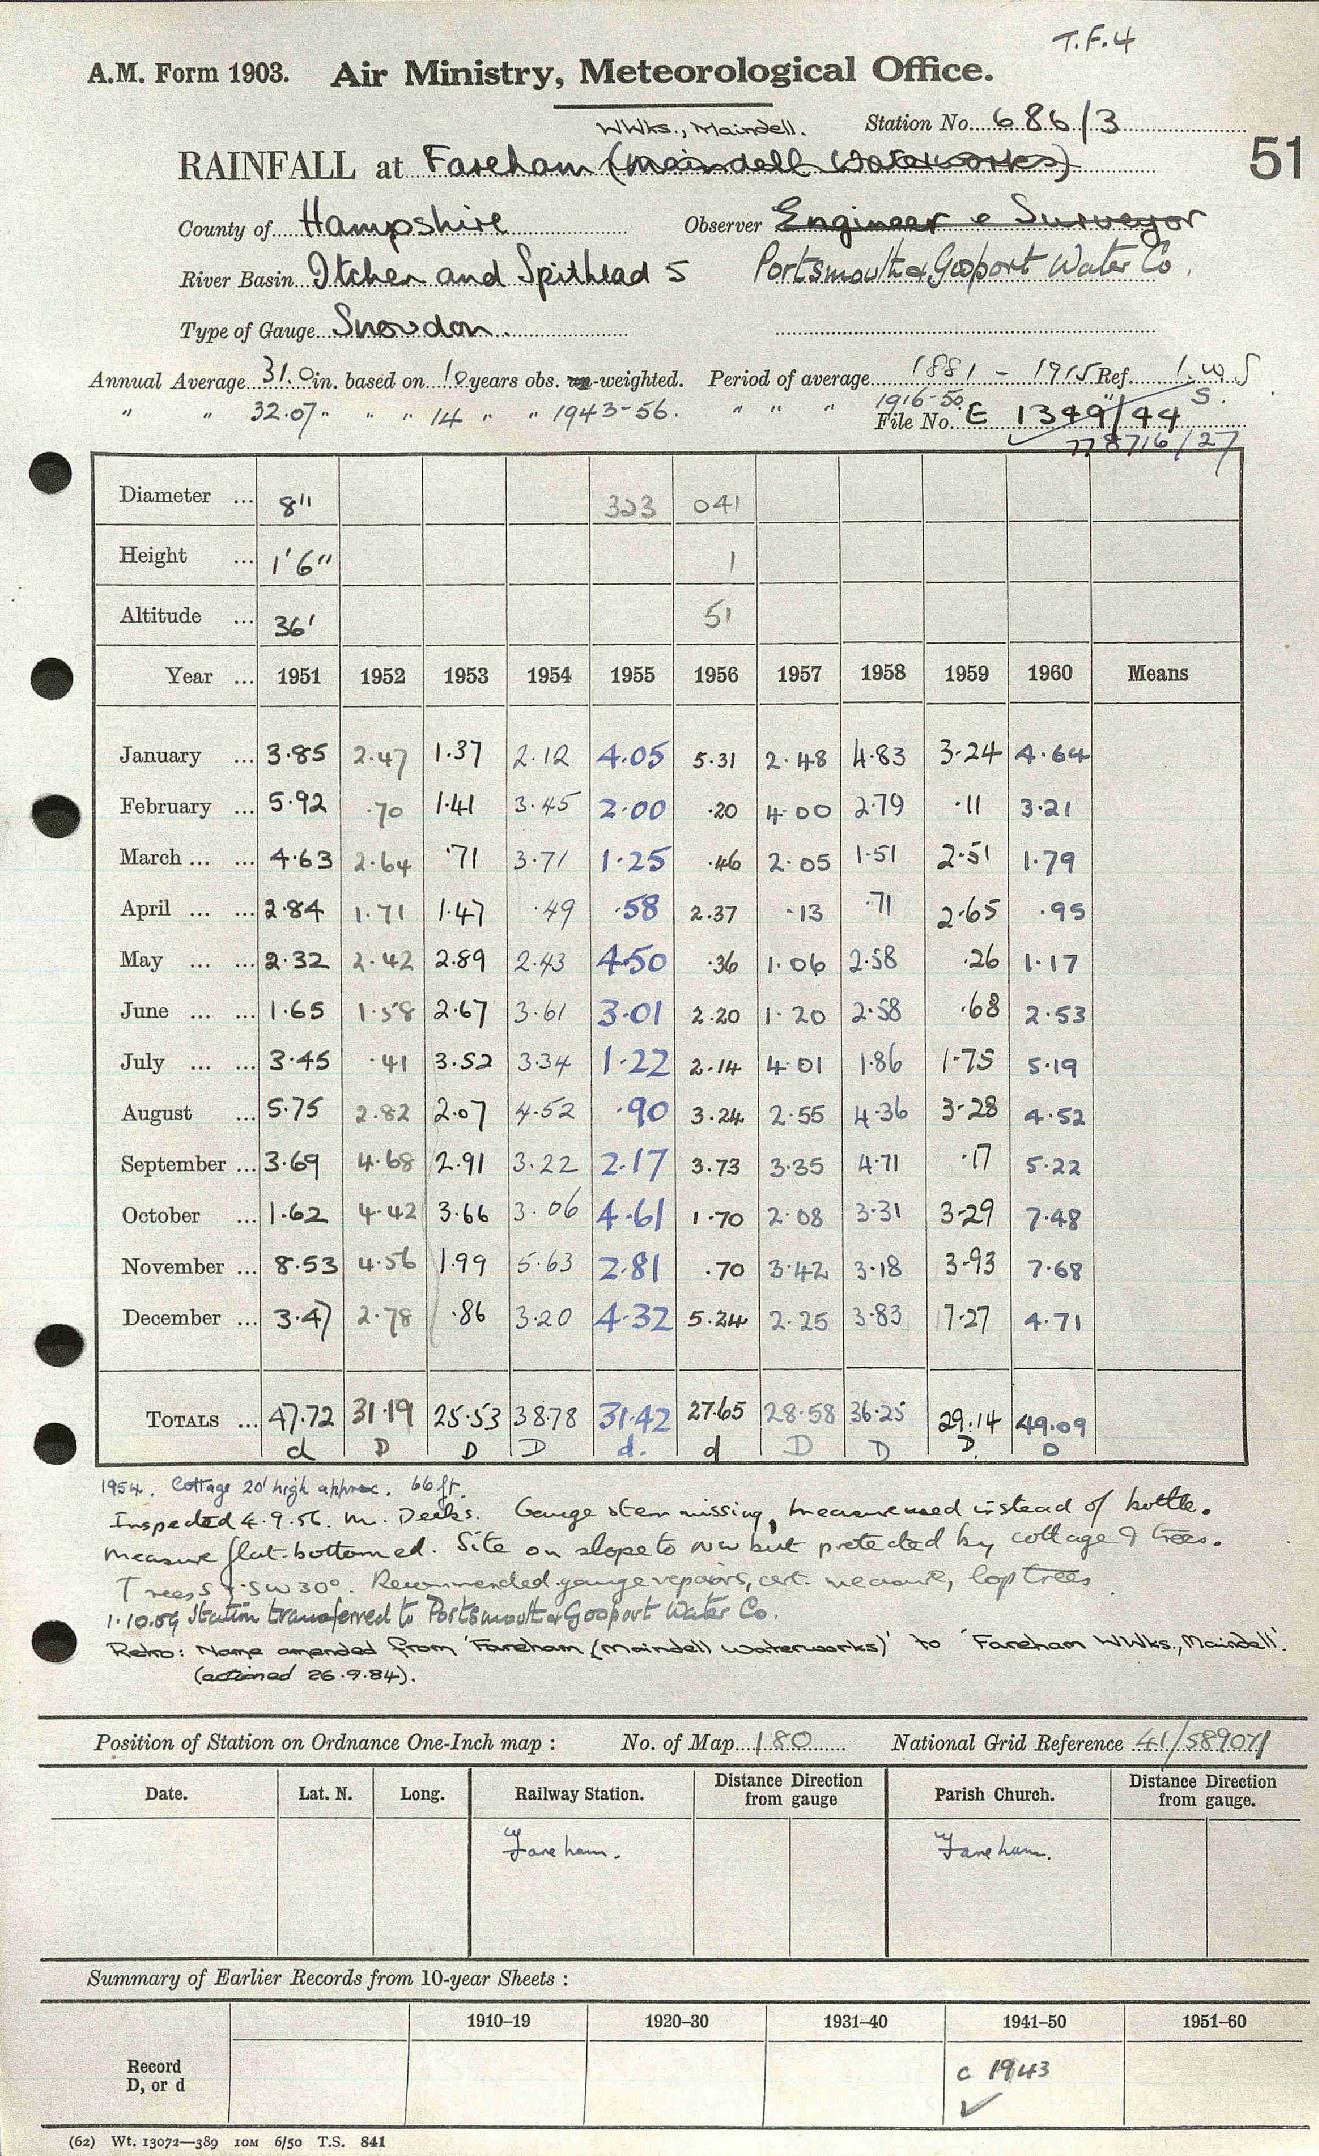 T.F.4
A.M. Form 1903. Air Ministry, Meteorological Office.
WWks., Maindell. Station No. 686/3
RAINFALL at Fareham (Maindell Waterworks) 51
County of Hampshire Observer Engineer & Surveyor
River Basin Itchen and Spithead S Portsmouth & Gosport Water Co.
Type of Gauge Snowdon.
Annual Average 31.0 in. based on 10 years obs. -weighted. Period of average 1881 - 1915 Ref. 1.W S
" " 32.07 " " " 14 " " 1943-56. " " " 1916-50 " S.
File No. E 1349/44
778716/27
Diameter ... 8" 323 041
Height ... 1'6" 1
Altitude ... 36' 51
Year ... 1951 1952 1953 1954 1955 1956 1957 1958 1959 1960 Means
January ... 3.85 2.47 1.37 2.12 4.05 5.31 2.48 4.83 3.24 4.64
February ... 5.92 .70 1.41 3.45 2.00 .20 4.00 2.79 .11 3.21
March ... ... 4.63 2.64 .71 3.71 1.25 .46 2.05 1.51 2.51 1.79
April ... ... 2.84 1.71 1.47 .49 .58 2.37 .13 .71 2.65 .95
May ... ... 2.32 2.42 2.89 2.43 4.50 .36 1.06 2.58 .26 1.17
June ... ... 1.65 1.58 2.67 3.61 3.01 2.20 1.20 2.58 .68 2.53
July ... ... 3.45 .41 3.52 3.34 1.22 2.14 4.01 1.86 1.75 5.19
August ... 5.75 2.82 2.07 4.52 .90 3.24 2.55 4.36 3.28 4.52
September ... 3.69 4.68 2.91 3.22 2.17 3.73 3.35 4.71 .17 5.22
October ... 1.62 4.42 3.66 3.06 4.61 1.70 2.08 3.31 3.29 7.48
November ... 8.53 4.56 1.99 5.63 2.81 .70 3.42 3.18 3.93 7.68
December ... 3.47 2.78 .86 3.20 4.32 5.24 2.25 3.83 7.27 4.71
TOTALS ... 47.72 31.19 25.53 38.78 31.42 27.65 28.58 36.25 29.14 49.09
d D D D d. d D D D D
1954. Cottage 20' high approx. 66 ft.
Inspected 4.9.56. Mr. Deeks. Gauge stem missing, measure used instead of bottle.
Measure flat-bottomed. Site on slope to NW but protected by cottage & trees.
Trees S & SW 30°. Recommended gauge repairs, cert. measure, lop trees
1.10.59 Station transferred to Portsmouth & Gosport Water Co.
Retro: Name amended from 'Fareham (Maindell Waterworks)' to 'Fareham WWks., Maindell'.
(actioned 26.9.84).
Position of Station on Ordnance One-Inch map : No. of Map 180 National Grid Reference 41/589071
Date. Lat. N. Long. Railway Station. Distance Direction from gauge Parish Church. Distance Direction from gauge.
Fareham. Fareham.
Summary of Earlier Records from 10-year Sheets :
1910–19 1920–30 1931–40 1941–50 1951–60
Record D, or d c 1943 ✓
(62) Wt. 13072—389 10M 6/50 T.S. 841